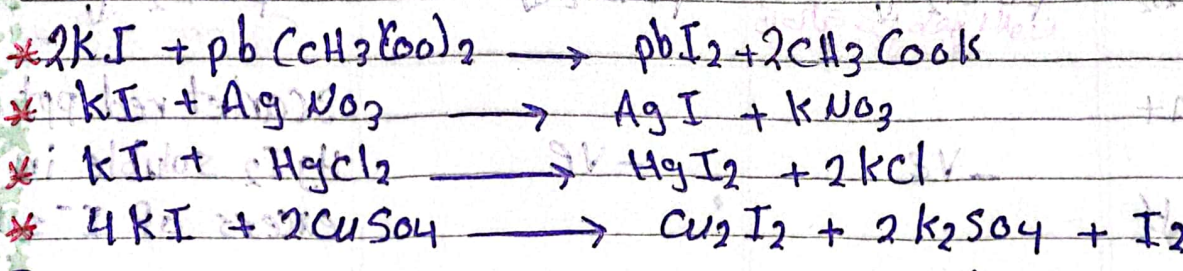 *2KI + pb(CH3Coo)2 → pbI2+2CH3Cook
* KI + AgNO3 → AgI + KNO3
* KI + HgCl2 → HgI2 + 2KCl
* 4KI + 2CuSO4 → Cu2I2 + 2K2SO4 + I2